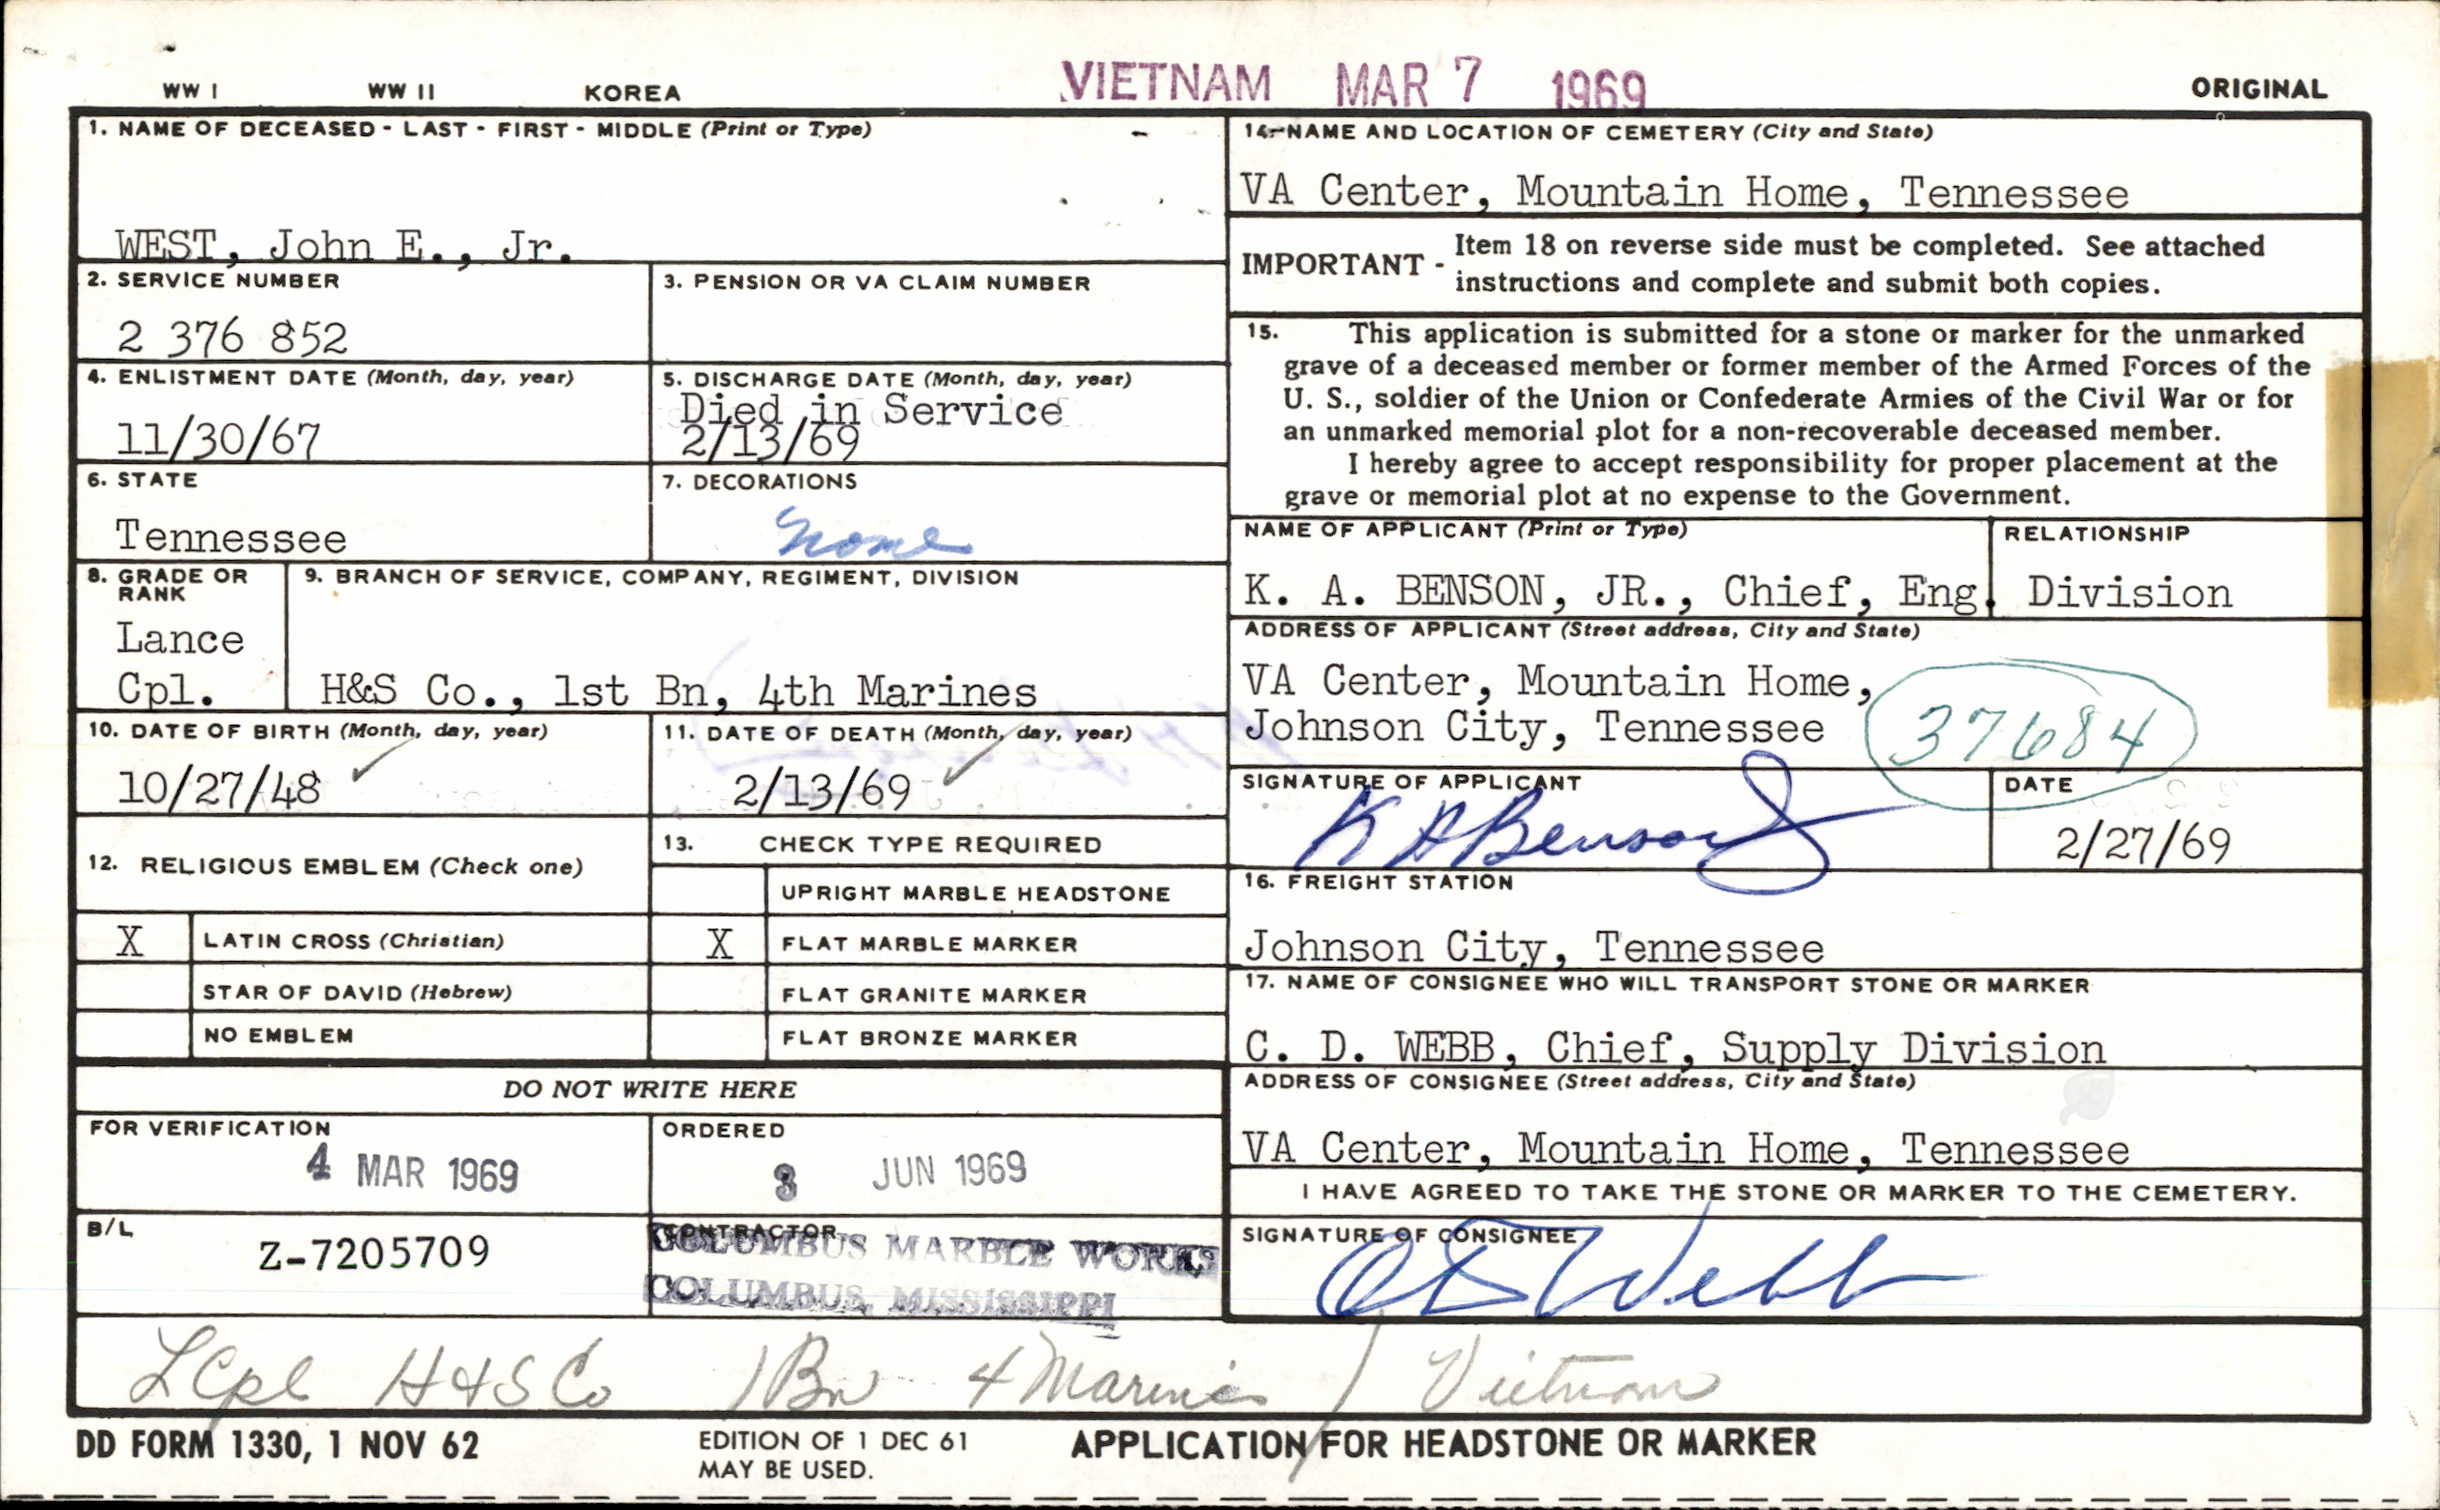 WW I WW II KOREA VIETNAM MAR 7 1969 ORIGINAL
1. NAME OF DECEASED - LAST - FIRST - MIDDLE (Print or Type)
WEST, John E., Jr.
2. SERVICE NUMBER
2 376 852
3. PENSION OR VA CLAIM NUMBER
4. ENLISTMENT DATE (Month, day, year)
11/30/67
5. DISCHARGE DATE (Month, day, year)
Died in Service
2/13/69
6. STATE
Tennessee
7. DECORATIONS
None
8. GRADE OR
RANK
Lance
Cpl.
9. BRANCH OF SERVICE, COMPANY, REGIMENT, DIVISION
H&S Co., 1st Bn, 4th Marines
10. DATE OF BIRTH (Month, day, year)
10/27/48
11. DATE OF DEATH (Month, day, year)
2/13/69
12. RELIGIOUS EMBLEM (Check one)
X LATIN CROSS (Christian)
STAR OF DAVID (Hebrew)
NO EMBLEM
13. CHECK TYPE REQUIRED
UPRIGHT MARBLE HEADSTONE
X FLAT MARBLE MARKER
FLAT GRANITE MARKER
FLAT BRONZE MARKER
DO NOT WRITE HERE
FOR VERIFICATION
4 MAR 1969
ORDERED
3 JUN 1969
B/L
Z-7205709
CONTRACTOR
COLUMBUS MARBLE WORKS
COLUMBUS, MISSISSIPPI
14. NAME AND LOCATION OF CEMETERY (City and State)
VA Center, Mountain Home, Tennessee
IMPORTANT - Item 18 on reverse side must be completed. See attached
instructions and complete and submit both copies.
15. This application is submitted for a stone or marker for the unmarked
grave of a deceased member or former member of the Armed Forces of the
U. S., soldier of the Union or Confederate Armies of the Civil War or for
an unmarked memorial plot for a non-recoverable deceased member.
I hereby agree to accept responsibility for proper placement at the
grave or memorial plot at no expense to the Government.
NAME OF APPLICANT (Print or Type) RELATIONSHIP
K. A. BENSON, JR., Chief, Eng. Division
ADDRESS OF APPLICANT (Street address, City and State)
VA Center, Mountain Home,
Johnson City, Tennessee 37684
SIGNATURE OF APPLICANT
K A Benson Jr
DATE
2/27/69
16. FREIGHT STATION
Johnson City, Tennessee
17. NAME OF CONSIGNEE WHO WILL TRANSPORT STONE OR MARKER
C. D. WEBB, Chief, Supply Division
ADDRESS OF CONSIGNEE (Street address, City and State)
VA Center, Mountain Home, Tennessee
I HAVE AGREED TO TAKE THE STONE OR MARKER TO THE CEMETERY.
SIGNATURE OF CONSIGNEE
C D Webb
LCpl H&S Co 1 Bn 4 Marines / Vietnam
DD FORM 1330, 1 NOV 62
EDITION OF 1 DEC 61
MAY BE USED.
APPLICATION FOR HEADSTONE OR MARKER